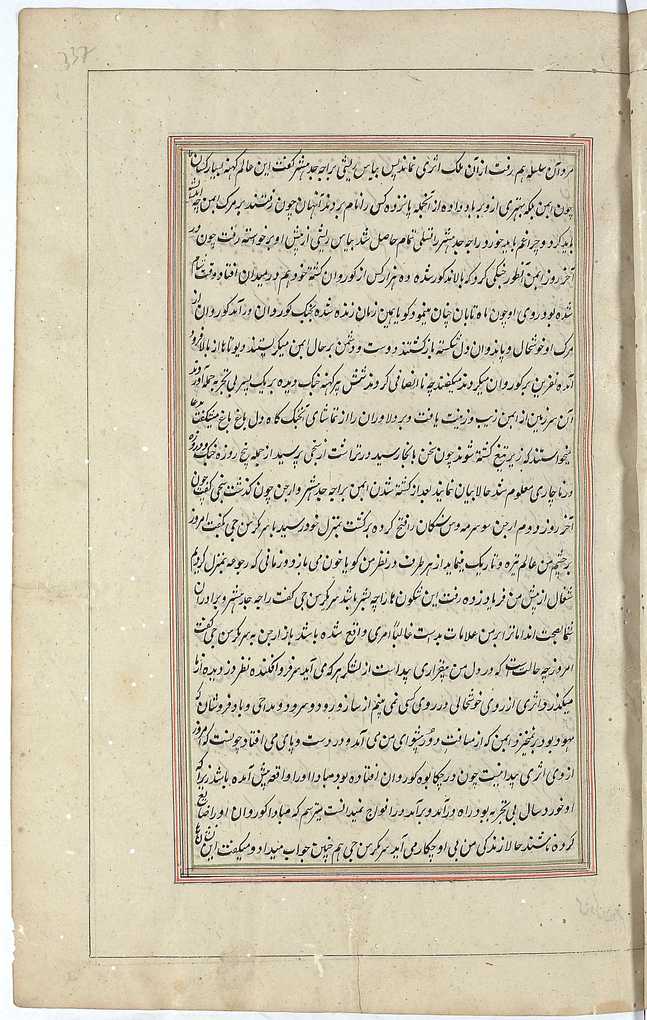 337
مرد آن سلسله هم رفت از آن ملک اثری نماند پس بیاس ریشی براجه جدهشتر گفت این عالم کهنه بسیار کسان
چون ابهمن بلکه بهتری ازو بر باد داده از انجمله پانزده کس را نام بردند آنهان چون رفتند بر مرگ ابهمن چه
باید کرد و چرا غم باید خورد راجه جدهشتر را تسلی تمام حاصل شد بیاس ریشی از پیش او برخواسته رفت چون در
آخر روز ابهمن آنطور جنگی کرد که بالا مذکور شده ده هزار کس از کوروان کشته خود هم در میدان افتاد وقت شام
شده بود و روی او چون ماه تابان چنان مینمود که گویا همین زمان زنده شده بجنگ کوروان در آمد کوروان از
مرگ او خوشحال و پاندوان دل شکسته بازگشتند دوست و دشمن بر حال ابهمن میگریستند و دیوتاها از بالا فرود
آمده نفرین بر کوروان میکردند میگفتند چه نا انصافی کردند شش هیر کهنه جنگ دیده بر یک پسر بی تجربه حمله آوردند
آن سرزمین از ابهمن زیب و زینت یافت و بر دلاوران را از تماشای آنجنگ گاه دل باغ باغ میشگفت
میخواستند که زیر تیغ کشته شوند چون سخن باینجا رسید دهرتراشت از سنجی پرسید از جمله پنج روزه جنگ دو روزه
درناچاری معلوم شد حالا بیان نمایند بعد از کشته شدن ابهمن براجه جدهشتر و ارجن چون گذشت سنجی گفت چون
آخر روز دوم ارجن سوسرمه و سن شکان را فتح کرده برگشت بمنزل خود رسید با سرکرسن جی گفت امروز
بر چشم من عالم تیره و تاریک مینماید از هر طرف در نظر من گویا خون می بارد و زمانی که رجوعه بمنزل کردیم
شغال از پیش من فریاد زده رفت این شگون ها را چه باشد سرکرسن جی گفت راجه جدهشتر و برادران
شما بصحت اند اما تر ابر من علامات بدست غالباً امری واقع شده باشد باز ارجن به سرکرسن جی گفت
امروز چه حالت است که در دل من بیقراری پیداست از لشکر هر که می آید سر فرو افکنده نظر دزدیده از ما
میگذرد اثری از روی خوشحالی در روی کسی نمی بینم از ساز و رود و سرود و مداحی و باد فروشان که
بهود بود بر نمیخیزد ابهمن که از مسافت دور پیشوای من می آمد و در دست و پای می افتاد چونست که امروز
ازوی اثری پیدا نیست چون در چکابوه کوروان افتاده بود مبادا او را واقعه پیش آمده باشد زیرا که
او خورد سال بی تجربه بود راه در آمد و برآمد در افواج نمیدانست میترسم که مبادا کوروان او را ضایع
کرده باشند حالا زندگی من بی او چکار می آید سرکرسن جی هم چنین جواب میداد و میگفت این نشان ها